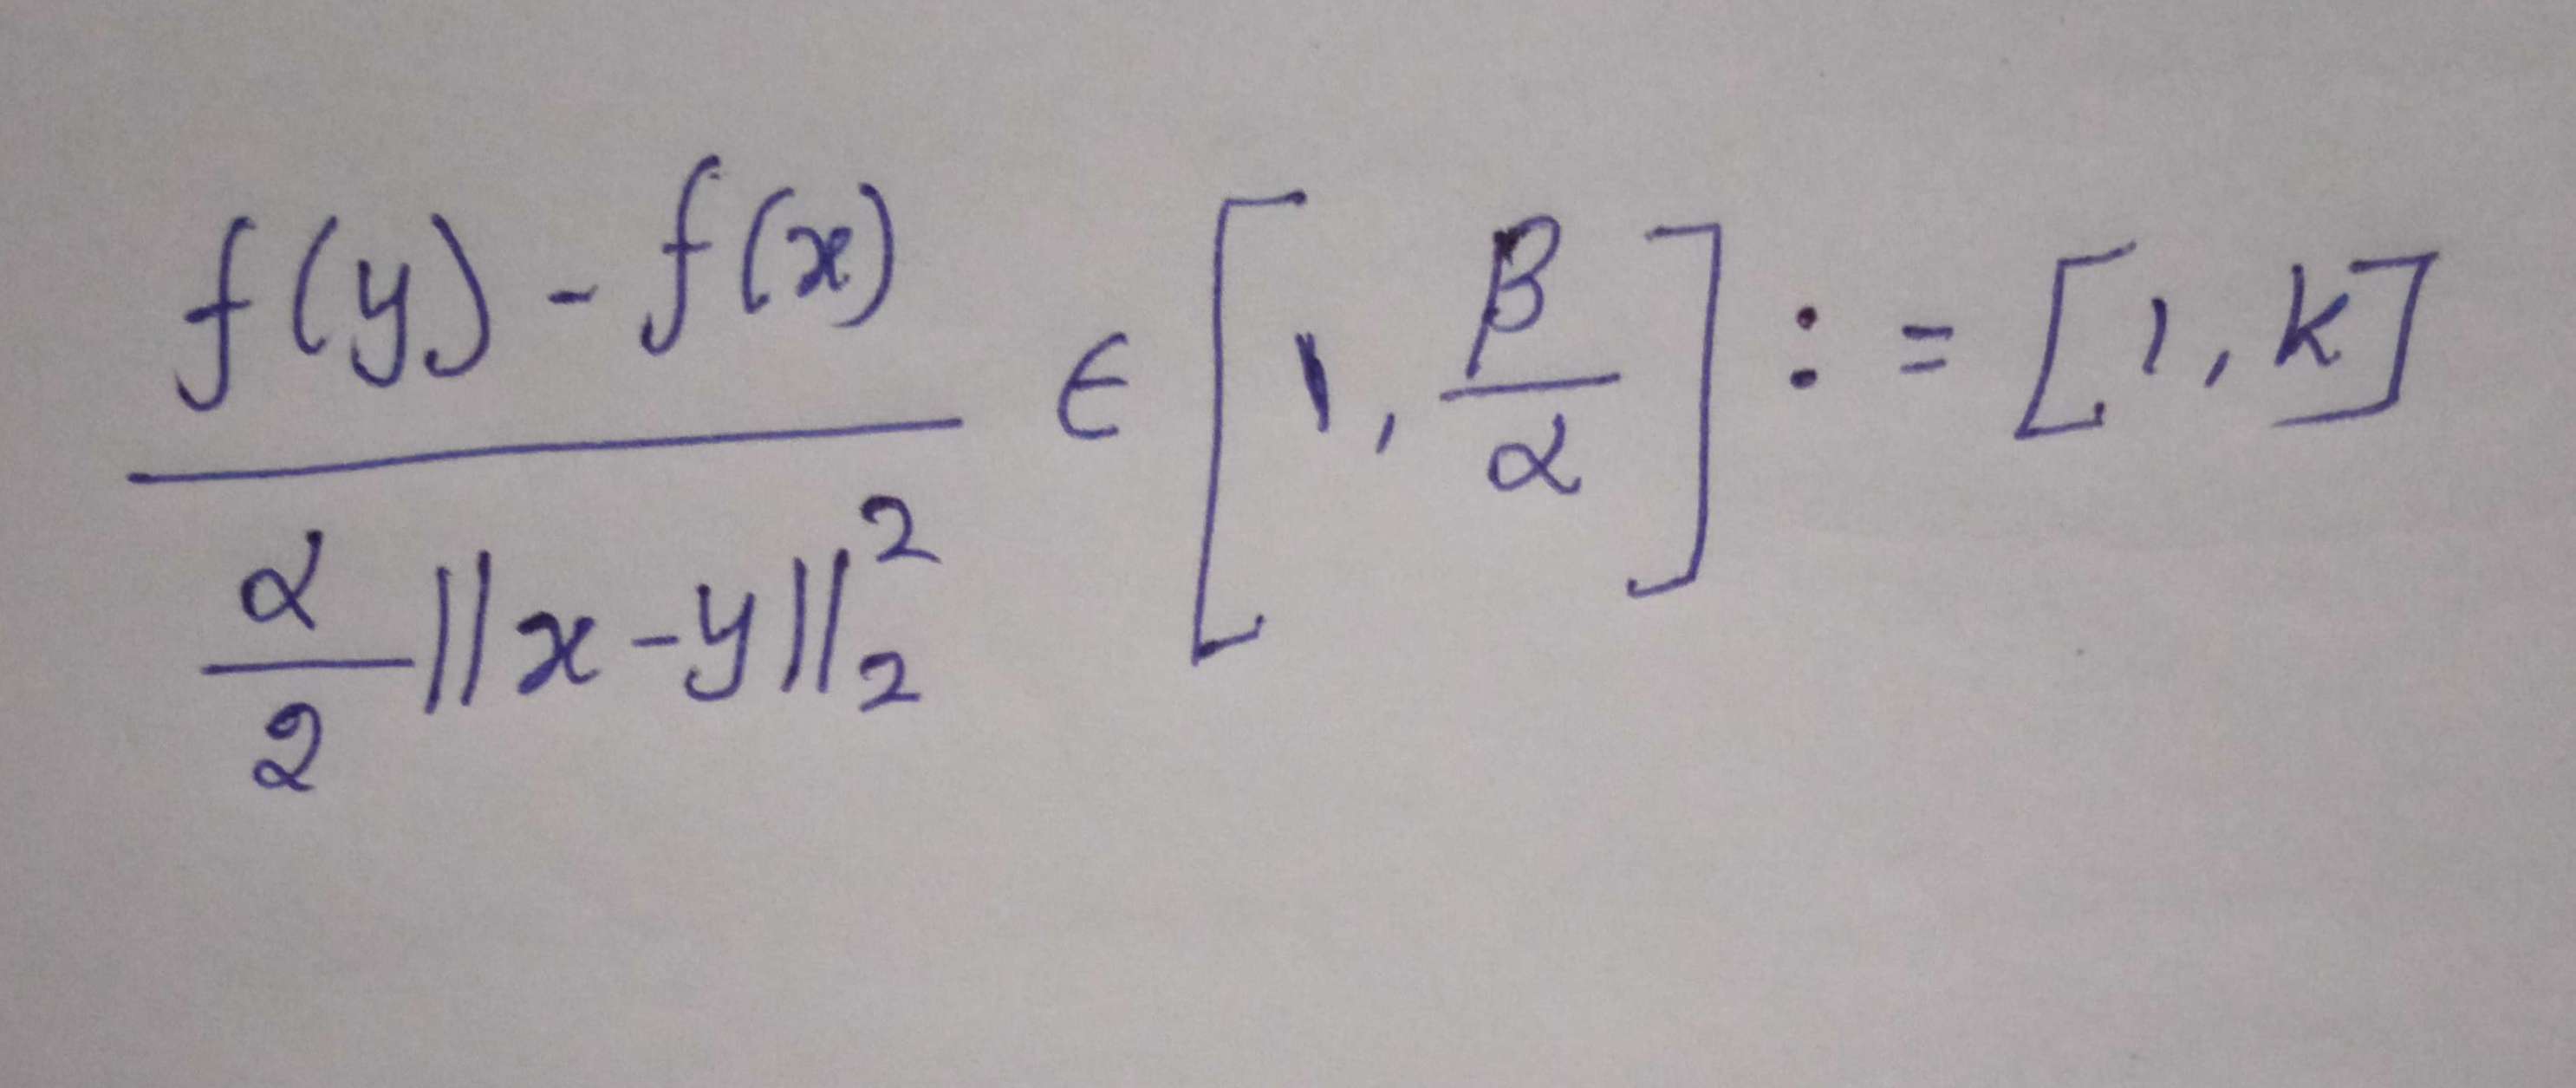 \frac{f(y) - f(x)}{\frac{\alpha}{2} ||x-y||_2^2} \in \left[ 1, \frac{\beta}{\alpha} \right] := [1, k]